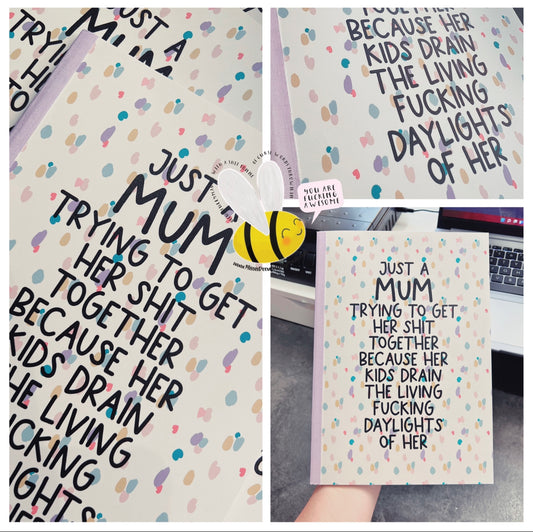 JUST A
MUM
TRYING TO GET
HER SHIT
TOGETHER
BECAUSE HER
KIDS DRAIN
THE LIVING
CKING
IGHTS
TOGETHER
BECAUSE HER
KIDS DRAIN
THE LIVING
FUCKING
DAYLIGHTS
OF HER
YOU ARE
FUCKING
AWESOME
JUST A
MUM
TRYING TO GET
HER SHIT
TOGETHER
BECAUSE HER
KIDS DRAIN
THE LIVING
FUCKING
DAYLIGHTS
OF HER